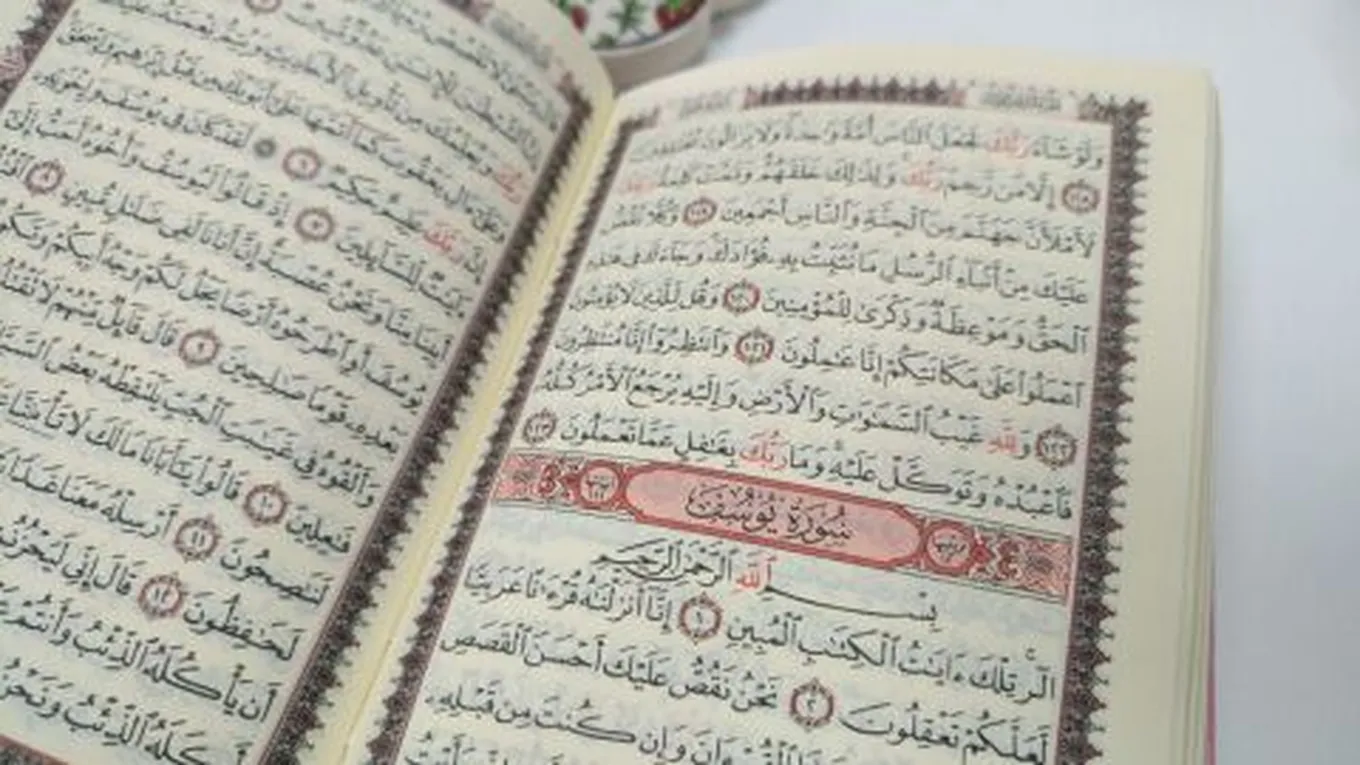 وَلَوْ شَآءَ رَبُّكَ لَجَعَلَ ٱلنَّاسَ أُمَّةً وَٰحِدَةً وَلَا يَزَالُونَ مُخْتَلِفِينَ
١١٨ إِلَّا مَن رَّحِمَ رَبُّكَ وَلِذَٰلِكَ خَلَقَهُمْ وَتَمَّتْ كَلِمَةُ رَبِّكَ
لَأَمْلَأَنَّ جَهَنَّمَ مِنَ ٱلْجِنَّةِ وَٱلنَّاسِ أَجْمَعِينَ ١١٩ وَكُلًّا نَّقُصُّ
عَلَيْكَ مِنْ أَنۢبَآءِ ٱلرُّسُلِ مَا نُثَبِّتُ بِهِۦ فُؤَادَكَ وَجَآءَكَ فِى هَٰذِهِ
ٱلْحَقُّ وَمَوْعِظَةٌ وَذِكْرَىٰ لِلْمُؤْمِنِينَ ١٢٠ وَقُل لِّلَّذِينَ لَا يُؤْمِنُونَ
ٱعْمَلُوا۟ عَلَىٰ مَكَانَتِكُمْ إِنَّا عَٰمِلُونَ ١٢١ وَٱنتَظِرُوٓا۟ إِنَّا مُنتَظِرُونَ
١٢٢ وَلِلَّهِ غَيْبُ ٱلسَّمَٰوَٰتِ وَٱلْأَرْضِ وَإِلَيْهِ يُرْجَعُ ٱلْأَمْرُ كُلُّهُۥ
فَٱعْبُدْهُ وَتَوَكَّلْ عَلَيْهِ وَمَا رَبُّكَ بِغَٰفِلٍ عَمَّا تَعْمَلُونَ ١٢٣
سُورَةُ يُوسُفَ
بِسْمِ ٱللَّهِ ٱلرَّحْمَٰنِ ٱلرَّحِيمِ
الٓر تِلْكَ ءَايَٰتُ ٱلْكِتَٰبِ ٱلْمُبِينِ ١ إِنَّآ أَنزَلْنَٰهُ قُرْءَٰنًا عَرَبِيًّا
لَّعَلَّكُمْ تَعْقِلُونَ ٢ نَحْنُ نَقُصُّ عَلَيْكَ أَحْسَنَ ٱلْقَصَصِ
ٱلْقُرْءَانَ وَإِن كُنتَ مِن قَبْلِهِۦ
رَبُّكَ وَيُعَلِّمُكَ مِن تَأْوِيلِ ٱلْأَحَادِيثِ وَيُتِمُّ نِعْمَتَهُۥ
وَعَلَىٰٓ ءَالِ يَعْقُوبَ كَمَآ أَتَمَّهَا عَلَىٰٓ أَبَوَيْكَ مِن قَبْلُ إِبْرَٰهِيمَ وَإِسْحَٰقَ
إِنَّ رَبَّكَ عَلِيمٌ حَكِيمٌ ٦ لَّقَدْ كَانَ فِى يُوسُفَ وَإِخْوَتِهِۦٓ
ءَايَٰتٌ لِّلسَّآئِلِينَ ٧ إِذْ قَالُوا۟ لَيُوسُفُ وَأَخُوهُ أَحَبُّ إِلَىٰٓ
أَبِينَا مِنَّا وَنَحْنُ عُصْبَةٌ إِنَّ أَبَانَا لَفِى ضَلَٰلٍ مُّبِينٍ ٨
يُوسُفَ أَوِ ٱطْرَحُوهُ أَرْضًا يَخْلُ لَكُمْ وَجْهُ أَبِيكُمْ وَتَكُونُوا۟
بَعْدِهِۦ قَوْمًا صَٰلِحِينَ ٩ قَالَ قَآئِلٌ مِّنْهُمْ لَا تَقْتُلُوا۟
وَأَلْقُوهُ فِى غَيَٰبَتِ ٱلْجُبِّ يَلْتَقِطْهُ بَعْضُ ٱلسَّيَّارَةِ
فَٰعِلِينَ ١٠ قَالُوا۟ يَٰٓأَبَانَا مَا لَكَ لَا تَأْمَ۫نَّا
لَنَٰصِحُونَ ١١ أَرْسِلْهُ مَعَنَا غَدًا
لَحَٰفِظُونَ ١٢ قَالَ إِنِّى لَيَحْزُنُنِىٓ
أَن يَأْكُلَهُ ٱلذِّئْبُ وَأَنتُمْ
أَكَلَهُ ٱلذِّئْبُ وَنَحْنُ